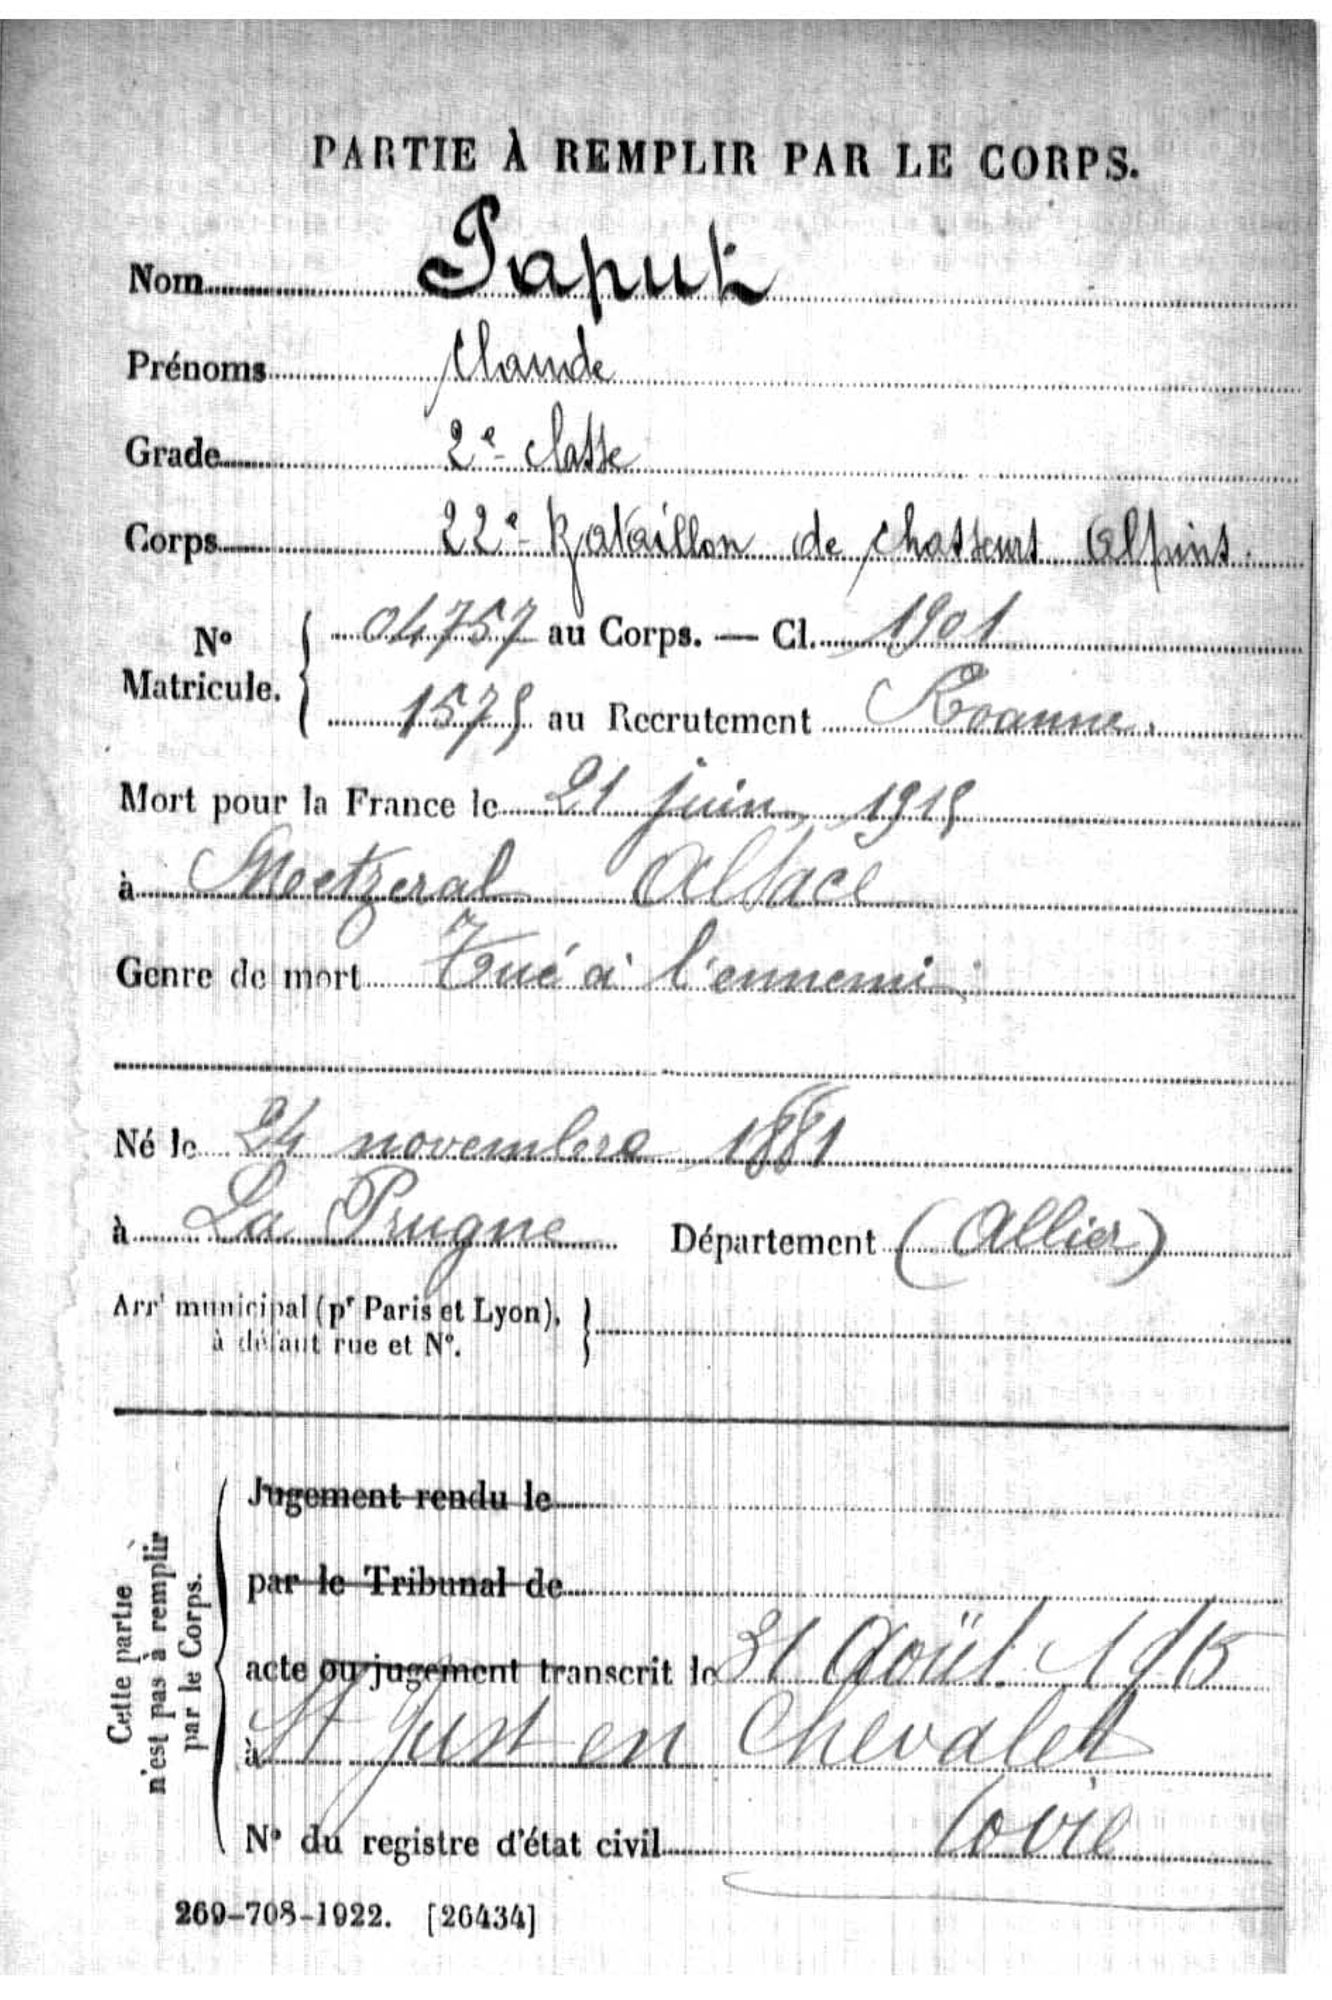 PARTIE À REMPLIR PAR LE CORPS.
Nom Paput
Prénoms Claude
Grade 2e classe
Corps 22e Bataillon de chasseurs Alpins.
No Matricule. 04757 au Corps. — Cl. 1901
1575 au Recrutement Roanne.
Mort pour la France le 21 juin 1915
à Metzeral Alsace
Genre de mort Tué à l'ennemi
Né le 24 novembre 1881
à La Prugne Département (Allier)
Arrt municipal (pr Paris et Lyon),
à défaut rue et No.
Cette partie n'est pas à remplir par le Corps.
Jugement rendu le
par le Tribunal de
acte ou jugement transcrit le 31 Août 1915
à St Just en Chevalet
No du registre d'état civil Loire
269-708-1922. [26434]